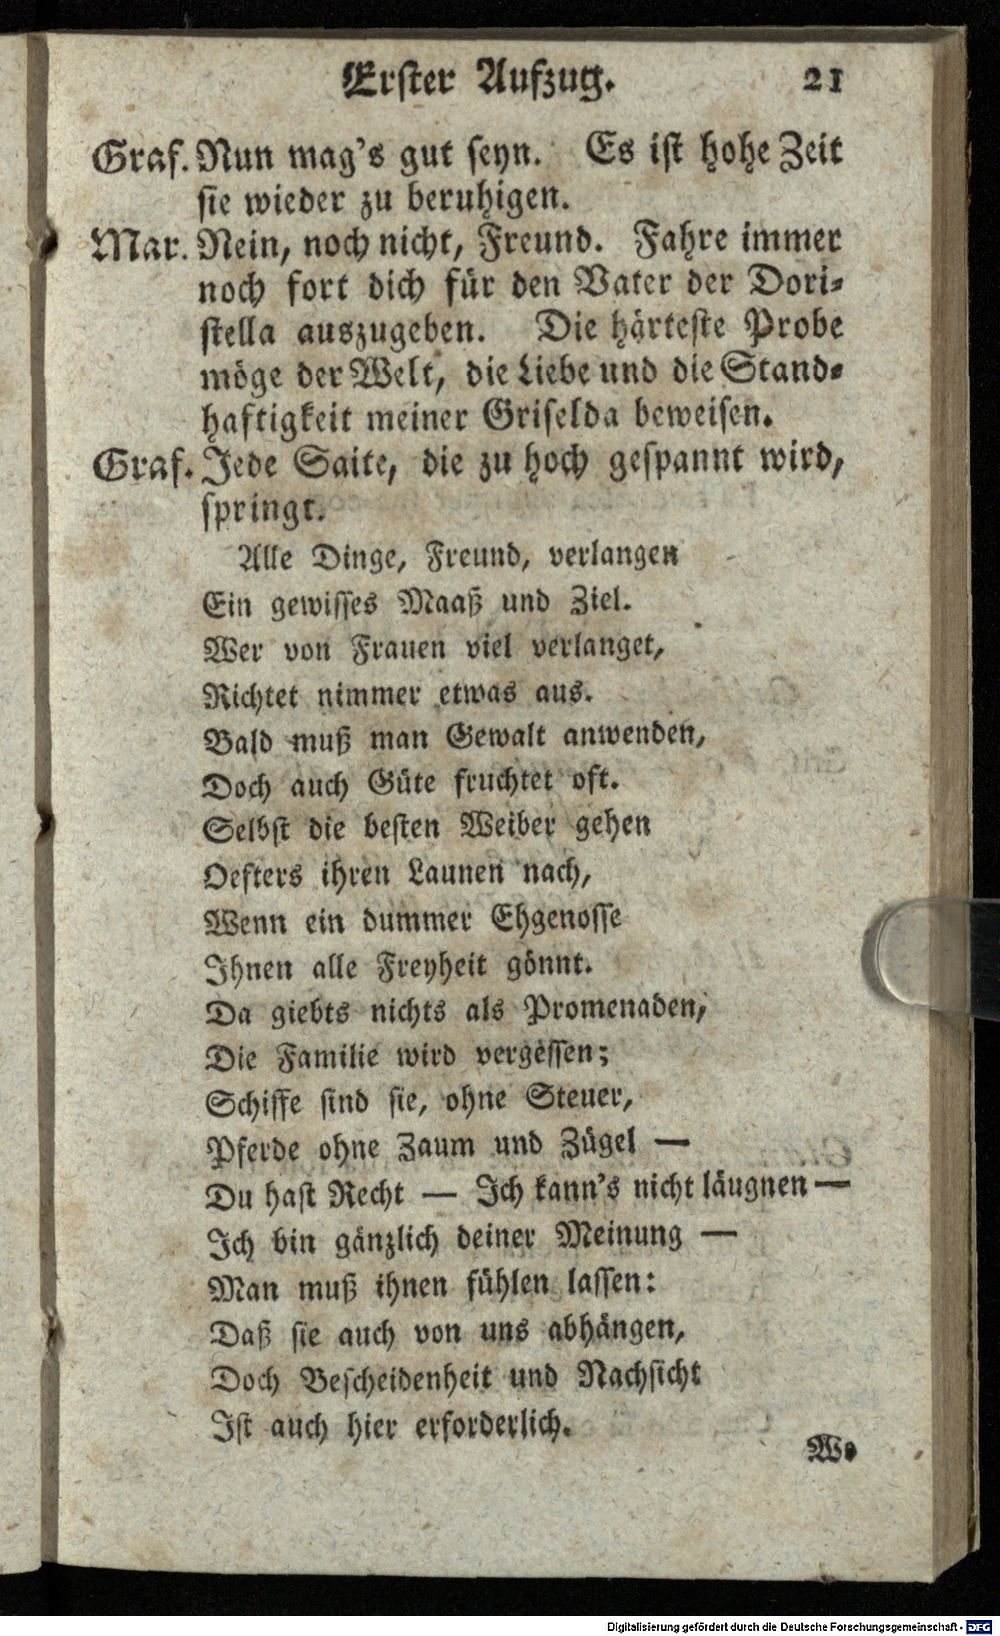 Erster Aufzug. 21
Graf. Nun mag's gut seyn. Es ist hohe Zeit
sie wieder zu beruhigen.
Mar. Nein, noch nicht, Freund. Fahre immer
noch fort dich für den Vater der Dori-
stella auszugeben. Die härteste Probe
möge der Welt, die Liebe und die Stand-
haftigkeit meiner Griselda beweisen.
Graf. Jede Saite, die zu hoch gespannt wird,
springt.
Alle Dinge, Freund, verlangen
Ein gewisses Maaß und Ziel.
Wer von Frauen viel verlanget,
Richtet nimmer etwas aus.
Bald muß man Gewalt anwenden,
Doch auch Güte fruchtet oft.
Selbst die besten Weiber gehen
Oefters ihren Launen nach,
Wenn ein dummer Ehgenosse
Ihnen alle Freyheit gönnt.
Da giebts nichts als Promenaden,
Die Familie wird vergessen;
Schiffe sind sie, ohne Steuer,
Pferde ohne Zaum und Zügel —
Du hast Recht — Ich kann's nicht läugnen —
Ich bin gänzlich deiner Meinung —
Man muß ihnen fühlen lassen:
Daß sie auch von uns abhängen,
Doch Bescheidenheit und Nachsicht
Ist auch hier erforderlich.
Wo
Digitalisierung gefördert durch die Deutsche Forschungsgemeinschaft - DFG